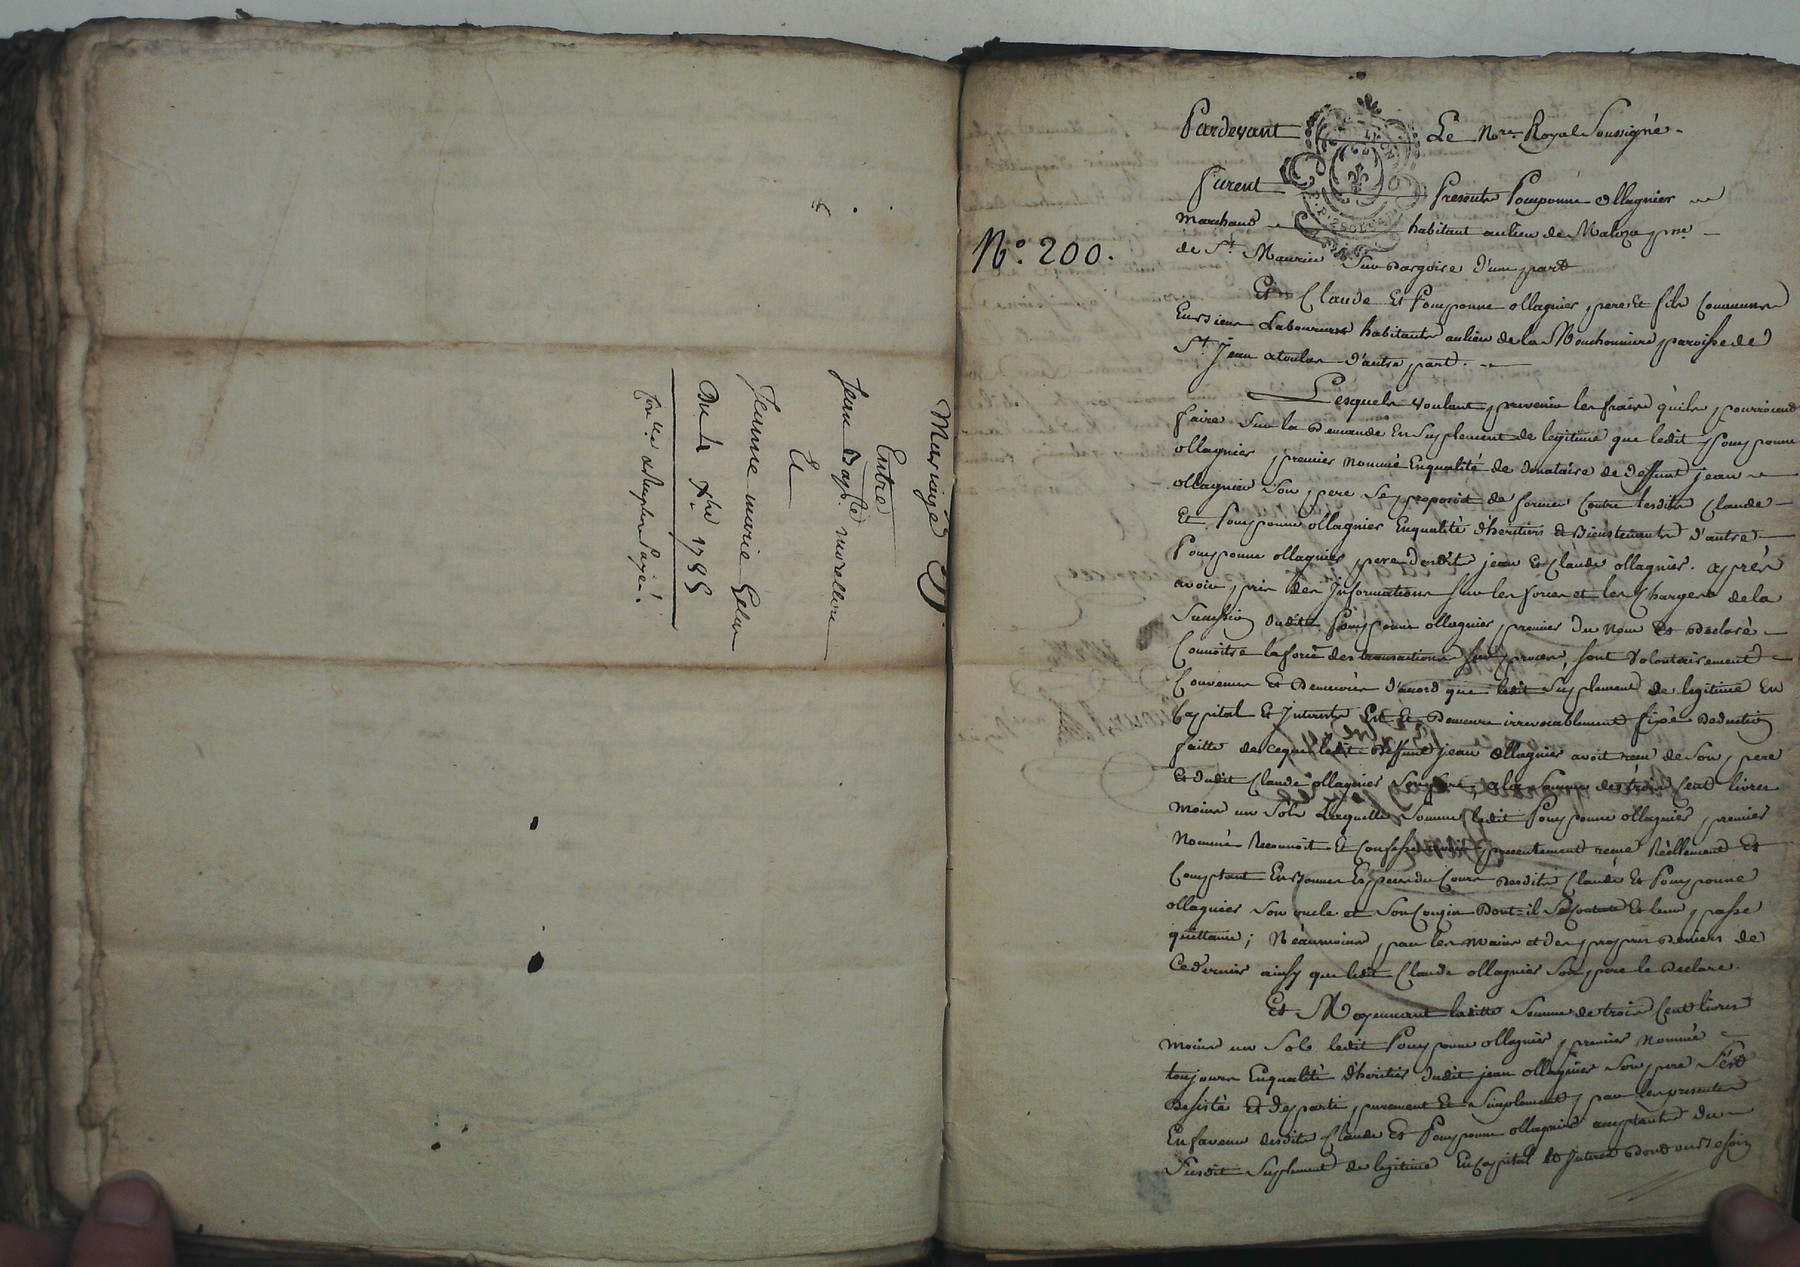 Mariage
Entre
Jean Bapte morellon
Et
Jeanne marie
Du 4 Xbre 1785
N°. 200.
Pardevant Le Nre. Royal Soussigné
furent presents Pomponne ollagnier
marchand habitant au lieu de
de St. Maurice Sur dargoire d'une part
Et Claude Et Pomponne ollagnier, pere Et fils Communs
En biens Laboureurs habitants au lieu de la Mouchonniere paroisse de
St. Jean atoulas d'autre part.
Lesquels voulant prevenir les fraix qu'ils pourroient
faire Sur la Demande En Suplement de legitime que ledit Pomponne
ollagnier, premier nommé Enqualité de donataire de deffunt jean
ollagnier Son pere Se proposoit de former Contre lesdits Claude
Et Pomponne ollagnier Enqualité d'heritiers Et Bienstenants d'autre
Pomponne ollagnier pere desdits jean Et Claude ollagnier. après
avoir pris des Informations Sur les forces et les Charges de la
Succession dudit Pomponne ollagnier, premier du Nom Et Declaré
Connoitre la force des transactions Sur procès, Sont Volontairement
Convenus Et Demeurés d'acord que ledit Suplement de legitime En
Capital Et Interets Est Et Demeure irrevocablement fixé Deduction
faitte de ceque ledit Deffunt jean ollagnier avoit recu de Son pere
Et dudit Claude ollagnier Son frere, ala Somme de trois Cent livres
moins un Sols Laquelle Somme ledit Pomponne ollagnier, premier
Nommé Reconnoit Et Confesse avoir presentement recue Réellement Et
Comptant En Bonnes Especes du Cours desdits Claude Et Pomponne
ollagnier Son oncle et Son Cousin Dont-il Se Contente Et leur passe
quittance; Néanmoins, par les mains et des propres Deniers de
Cedernier ainsy que ledit Claude ollagnier Son pere le Declare.
Et Moyennant laditte Somme de trois Cent livres
moins un Sols ledit Pomponne ollagnier, premier Nommé
toujours Enqualité d'heritier dudit jean ollagnier Son pere S'est
Desisté Et departi purement Et Simplement, par lespresentes
En faveur desdits Claude Et Pomponne ollagnier acceptants du
Susdit Suplement de legitime En Capital Et Interets dont ou Besoin